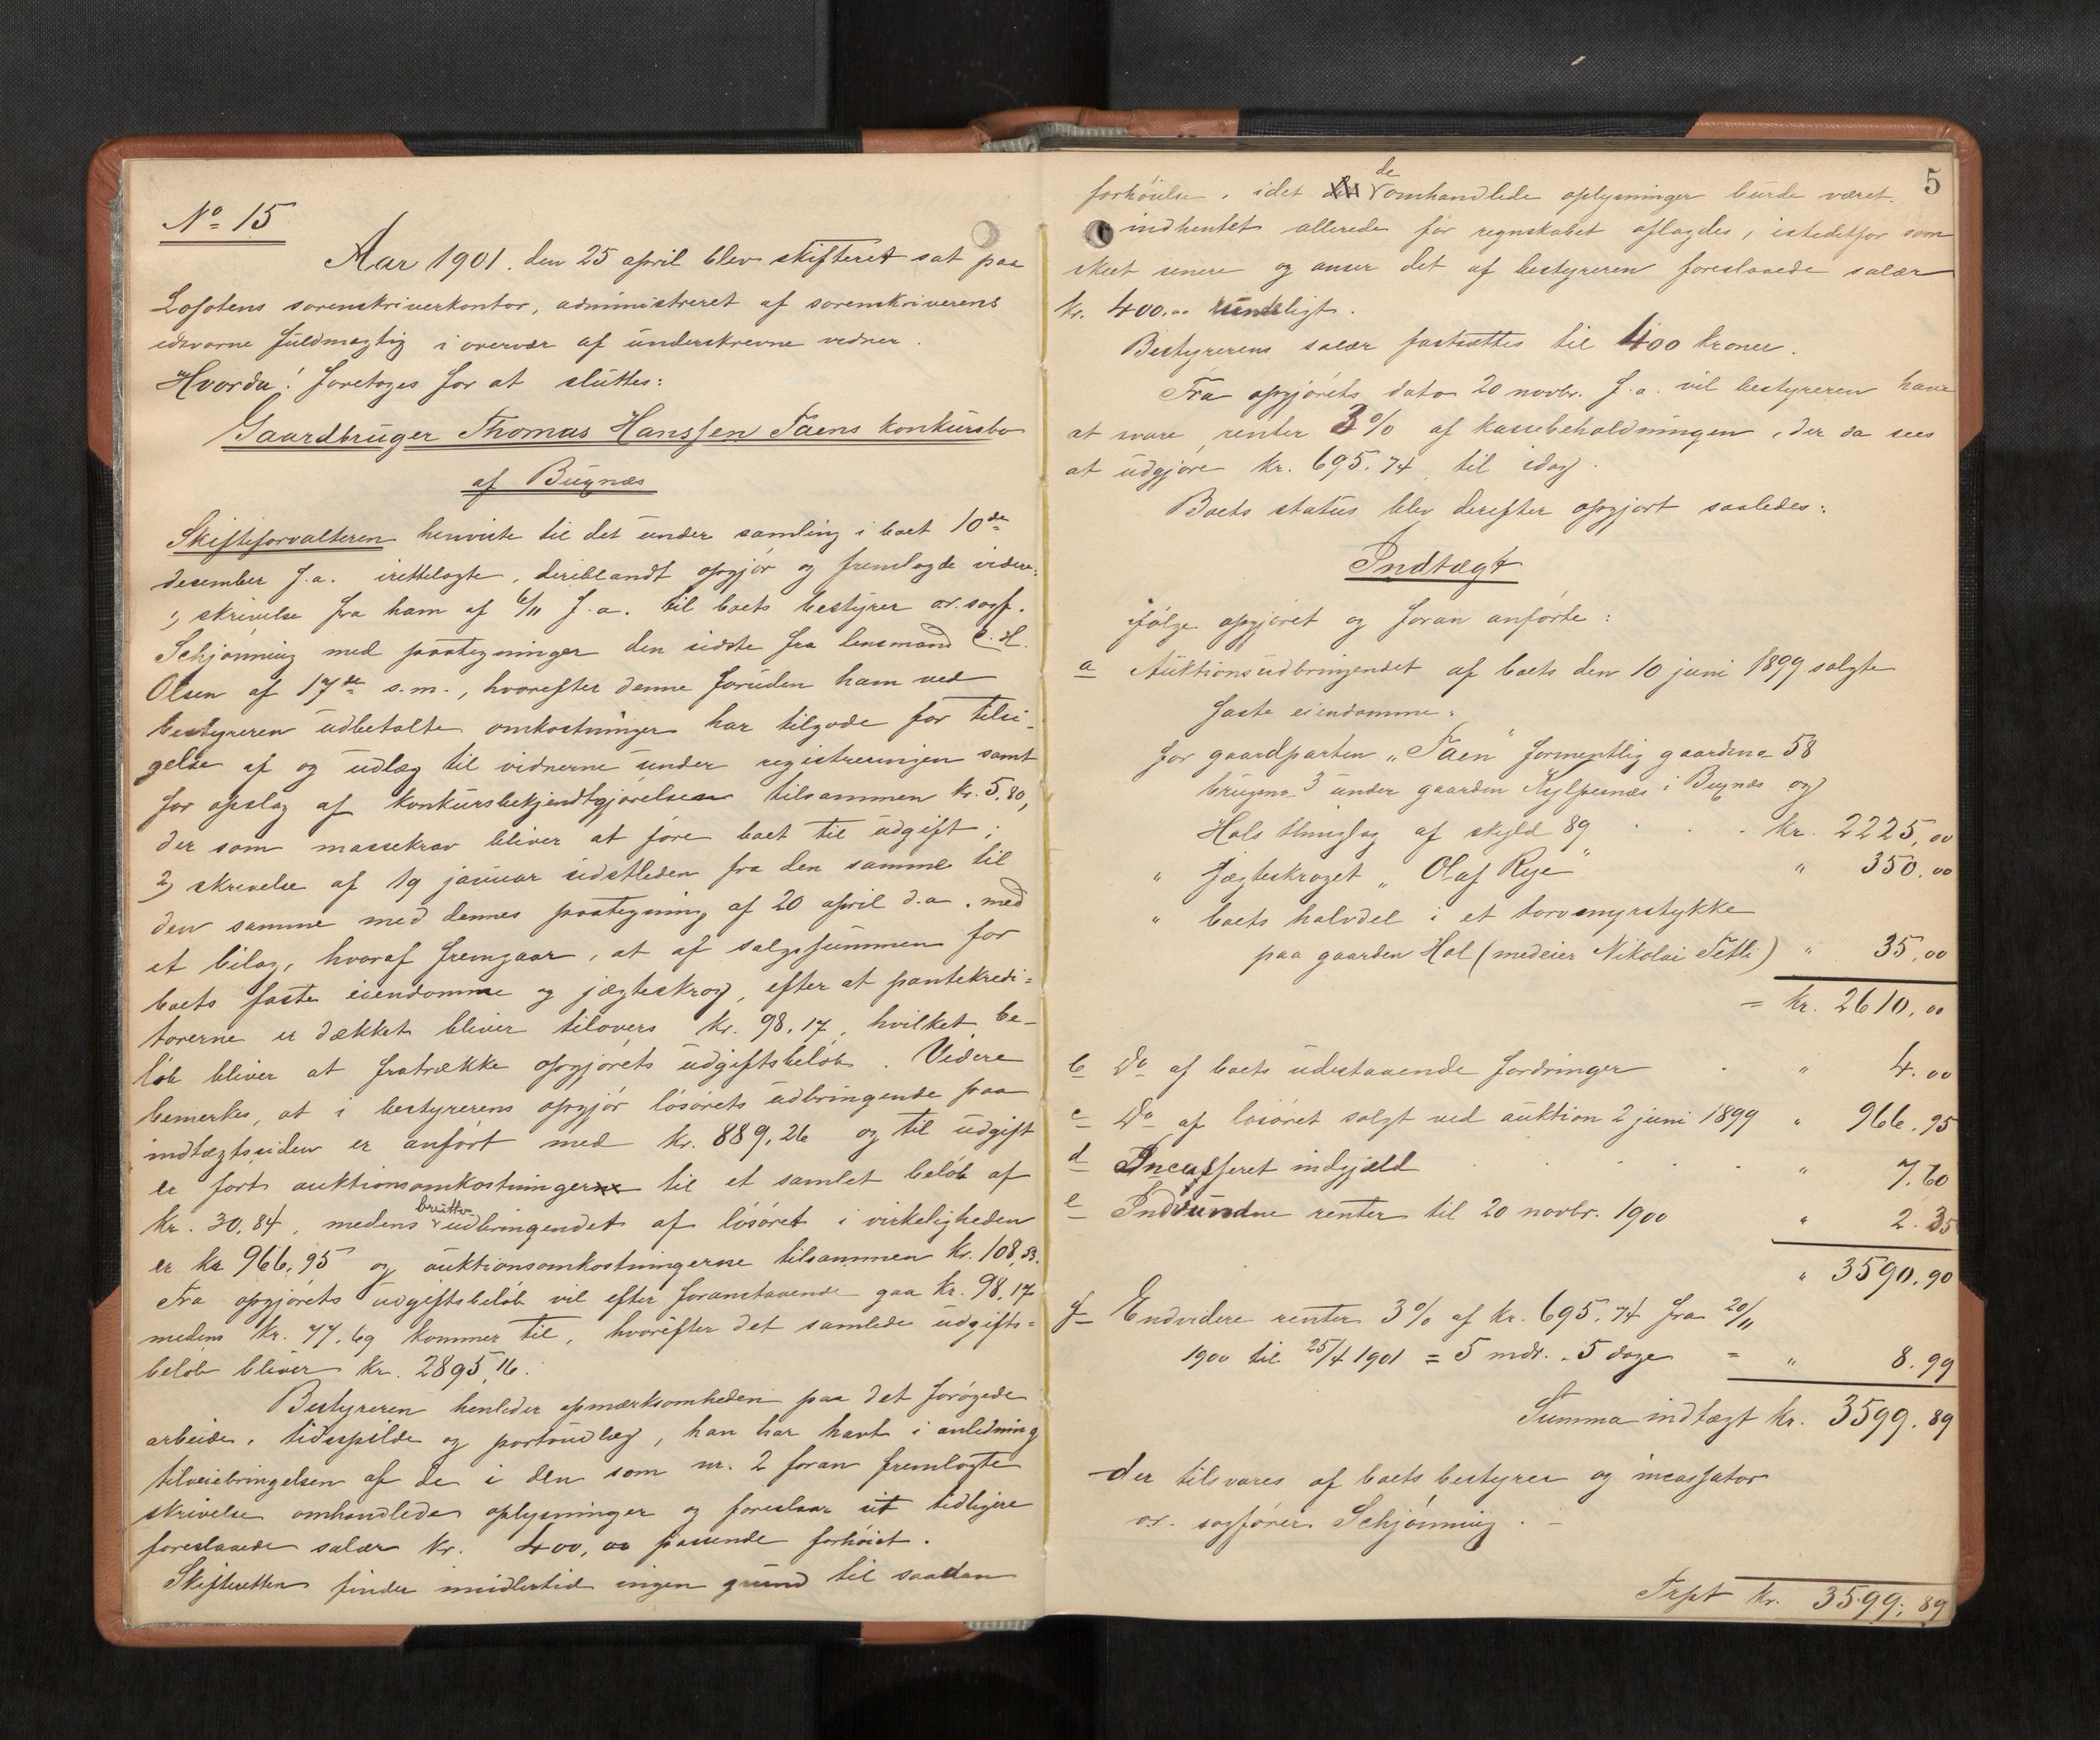 No 15
Aar 1901. den 25 april blev skifteret sat paa
Lofotens sorenskriverkontor, administreret af sorenskriverens
edsvorne fuldmægtig i overvær af underskrevne vidner.
Hvorda! foretoges for at sluttes:
Gaardbruger Thomas Hanssen Taens konkursbo
af Bugnæs
Skifteforvalteren henviste til det under samling i boet 10de
december f.a. irettelagte, deriblandt opgjør og fremlagde videre:
1) skrivelse fra ham af 6/11 f.a. til boets bestyrer or. sagf.
Schjønning med paategninger den sidste fra lensmand C. H.
Olsen af 17de s.m., hvorefter denne foruden ham ved
bestyreren udbetalte omkostninger har tilgode for tilsi-
gelse af og udlæg til vidnerne under registreringen samt
for opslag af konkursbekjendtgjørelsen tilsammen kr. 5,80,
der som massekrav bliver at føre boet til udgift;
2) skrivelse af 19 januar sidstleden fra den samme til
den samme med dennes paategning af 20 april d.a. med
et bilag, hvoraf fremgaar, at af salgssummen for
boets faste eiendomme og jægteskrog, efter at pantekredi-
torerne er dækket bliver tilovers kr. 98,17, hvilket be-
løb bliver at fratrække opgjørets udgiftsbeløb. Videre
bemerkes, at i bestyrerens opgjør løsørets udbringende paa
indtægtssiden er anført med kr. 889,26 og til udgift
er ført auktionsomkostninger til et samlet beløb af
kr. 30,84, medens brutto udbringendet af løsøret i virkeligheden
er kr 966,95 og auktionsomkostningerne tilsammen kr. 108,53.
Fra opgjørets udgiftsbeløb vil efter foranstaaende gaa kr. 98,17
medens kr. 77,69 kommer til, hvorefter det samlede udgifts-
beløb bliver kr. 2895,16.
Bestyreren henleder opmærksomheden paa det forøgede
arbeide, tidsspilde og portoudlæg, han har havt i anledning
tilveiebringelsen af de i den som nr. 2 foran fremlagte
skrivelse omhandlede oplysninger og foreslaar sit tidligere
foreslaaede salær kr. 400,00 passende forhøiet.
Skifteretten finder imidlertid ingen grund til saadan
5
forhøielse, idet de omhandlede oplysninger burde været
indhentet allerede før regnskabet aflagdes, istedetfor som
skeet senere og anser det af bestyreren foreslaaede salær
kr. 400,00 rundeligt.
Bestyrerens salær fastsættes til 400 kroner.
Fra opgjørets dato 20 novbr. f.a. vil bestyreren have
at svare renter 3% af kassebeholdningen, der da sees
at udgjøre kr. 695,74 til idag.
Boets status blev derefter opgjort saaledes:
Indtægt
ifølge opgjøret og foran anførte:
a Auktionsudbringendet af boets den 10 juni 1899 solgte
faste eiendomme:
for gaardparten "Taen" formentlig gaardsno 58
brugsno 3 under gaarden i Bugnæs og
Hols thinglag af skyld 89 . . . kr. 2225,00
" jægteskroget "Olaf Rye" " 350.00
" boets halvdel i et torvmyrstykke
paa gaarden Hol (medeier Nikolai Tetli) " 35,00
= kr. 2610,00
b Do af boets udestaaende fordringer . " 4.00
c Do af løsøret solgt ved auktion 2 juni 1899 " 966.95
d Incasseret indgjæld . . . . " 7.60
e Indvundne renter til 20 novbr. 1900 " 2.35
" 3590.90
f Endvidere renter 3% af kr. 695.74 fra 20/11
1900 til 25/4 1901 = 5 mdr. 5 dage = " 8.99
Summa indtægt kr. 3599.89
der tilsvares af boets bestyrer og incassator
or. sagfører Schjønning. -
Trspt kr. 3599,89